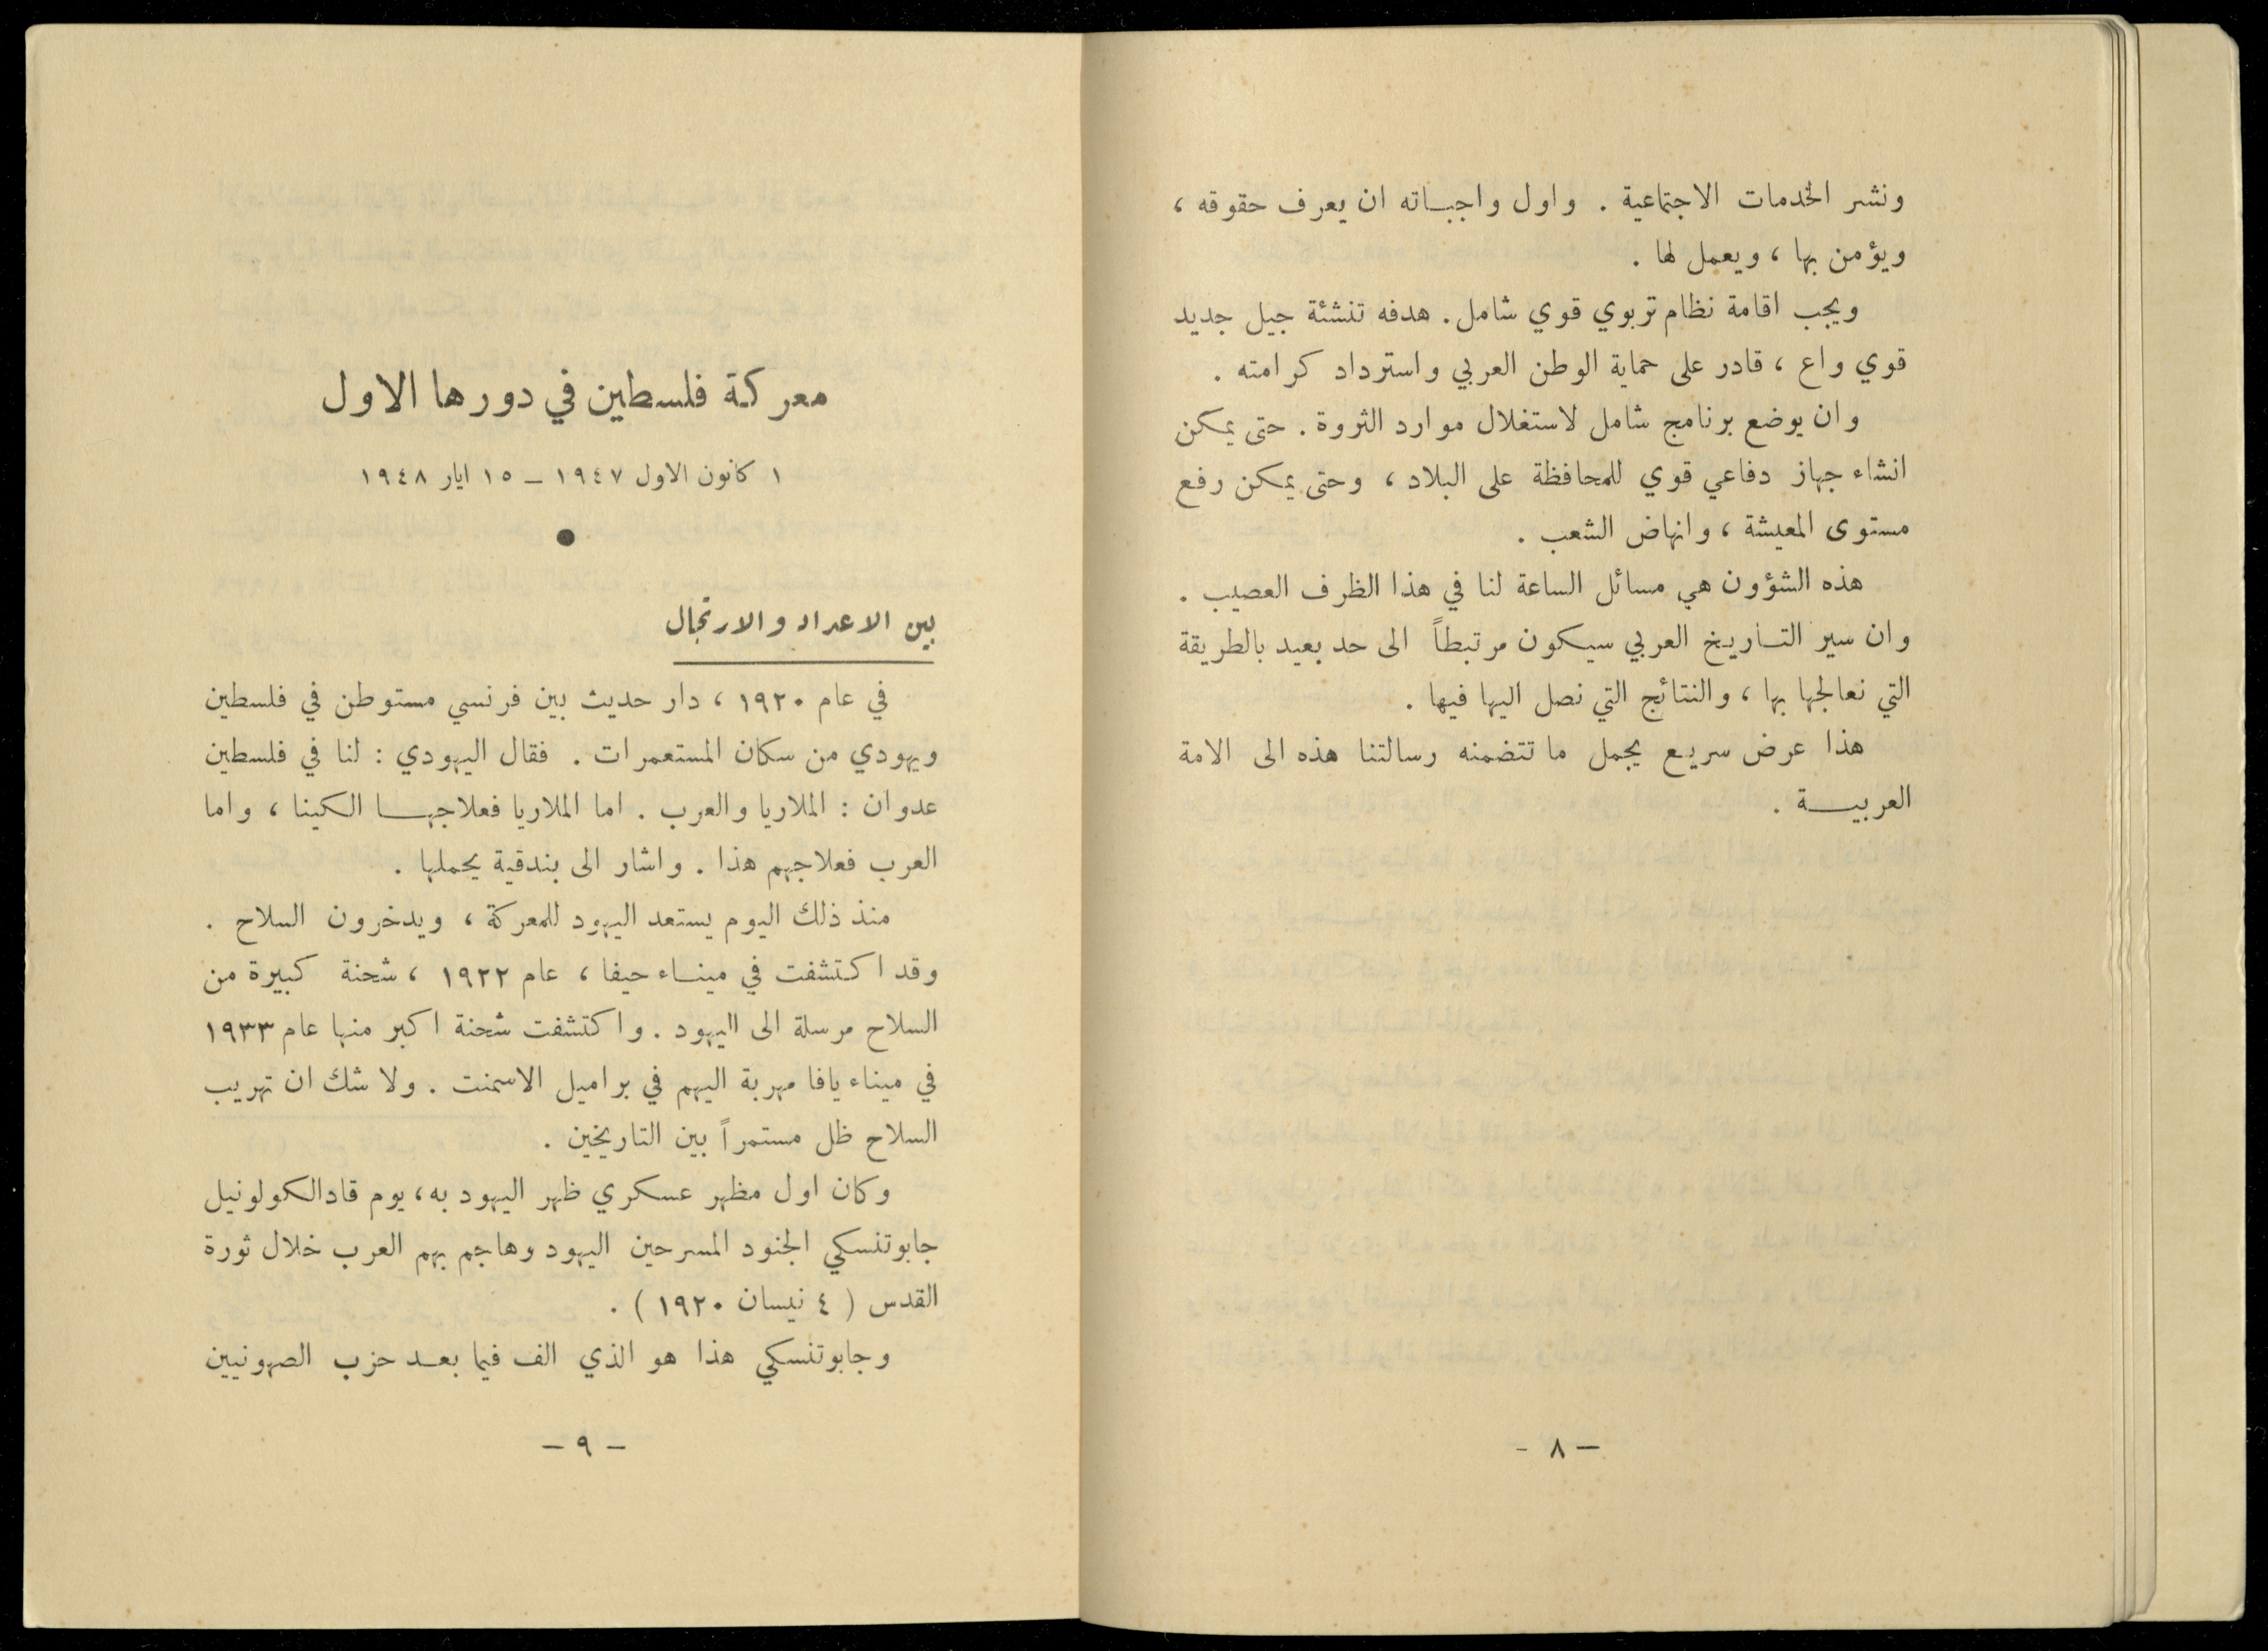 ونشر الخدمات الاجتماعية . واول واجباته ان يعرف حقوقه ،
ويؤمن بها ، ويعمل لها .
ويجب اقامة نظام تربوي قوي شامل . هدفه تنشئة جيل جديد
قوي واع ، قادر على حماية الوطن العربي واسترداد كرامته .
وان يوضع برنامج شامل لاستغلال موارد الثروة . حتى يمكن
انشاء جهاز دفاعي قوي للمحافظة على البلاد ، وحتى يمكن رفع
مستوى المعيشة ، وانهاض الشعب .
هذه الشؤون هي مسائل الساعة لنا في هذا الظرف العصيب .
وان سير التاريخ العربي سيكون مرتبطاً الى حد بعيد بالطريقة
التي نعالجها بها ، والنتائج التي نصل اليها فيها .
هذا عرض سريع يجمل ما تتضمنه رسالتنا هذه الى الامة
العربية .
— ٨ -
معركة فلسطين في دورها الاول
١ كانون الاول ١٩٤٧ – ١٥ ايار ١٩٤٨
●
بين الاعداد والارتجال
في عام ١٩٢٠ ، دار حديث بين فرنسي مستوطن في فلسطين
ويهودي من سكان المستعمرات . فقال اليهودي : لنا في فلسطين
عدوان : الملاريا والعرب . اما الملاريا فعلاجها الكينا ، واما
العرب فعلاجهم هذا . واشار الى بندقية يحملها .
منذ ذلك اليوم يستعد اليهود للمعركة ، ويدخرون السلاح .
وقد اكتشفت في ميناء حيفا ، عام ١٩٢٢ ، شحنة كبيرة من
السلاح مرسلة الى اليهود . واكتشفت شحنة اكبر منها عام ١٩٣٣
في ميناء يافا مهربة اليهم في براميل الاسمنت . ولا شك ان تهريب
السلاح ظل مستمراً بين التاريخين .
وكان اول مظهر عسكري ظهر اليهود به ، يوم قادالكولونيل
جابوتنسكي الجنود المسرحين اليهود وهاجم بهم العرب خلال ثورة
القدس ( ٤ نيسان ١٩٢٠ ) .
وجابوتنسكي هذا هو الذي الف فيما بعد حزب الصهونيين
— ٩ —